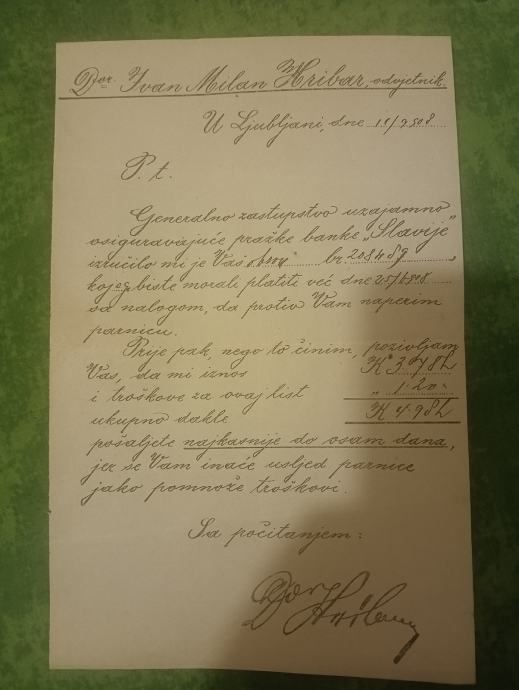 Dor. Ivan Milan Hribar, odvjetnik.
U Ljubljani, dne 11/9 508
P. t.
Generalno zastupstvo uzajamno
osiguravajuće pražke banke „Slavije"
izručilo mi je Vaš obrok br. 208489,
kojeg biste morali platiti već dne 25/6 508
sa nalogom, da protiv Vam naperim
parnicu.
Prije pak, nego to činim, pozivljam
Vas, da mi iznos K 3.78h
i troškove za ovaj list „ 1.20.
ukupno dakle K 4.98h
pošaljete najkasnije do osam dana,
jer se Vam inače usljed parnice
jako pomnože troškovi.
Sa počitanjem:
Dor Hribar